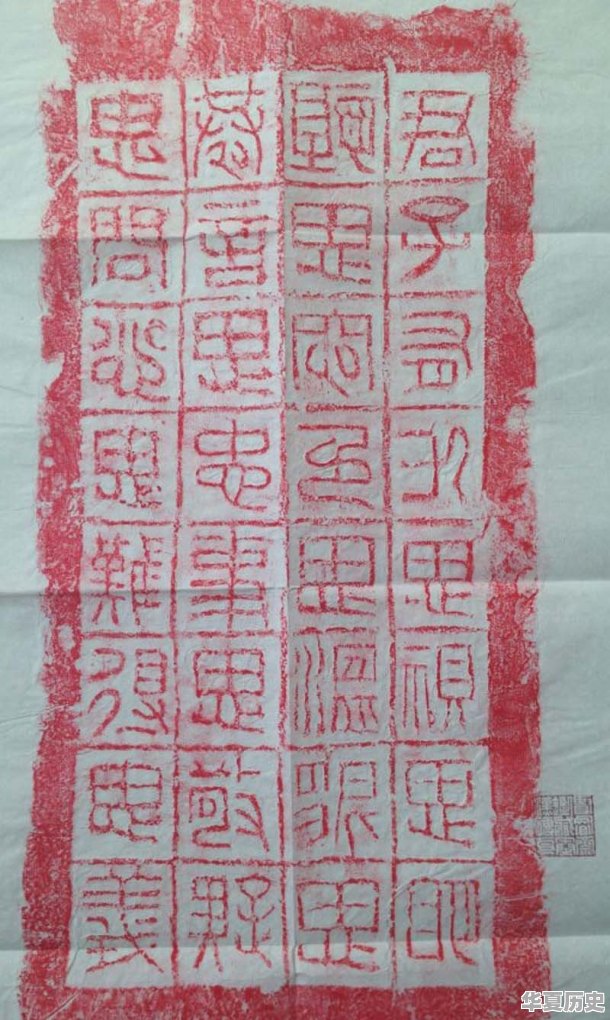 君子有九思視思明
聽思聰色思溫貌思
恭言思忠事思敬疑
思問忿思難得思義
华夏历史